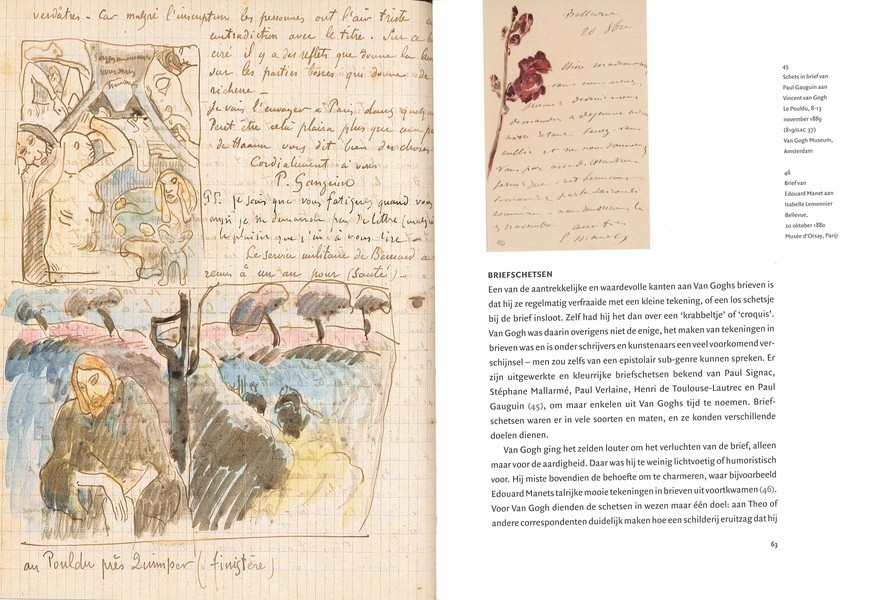 verdâtres - Car malgré l'inscription les personnes ont l'air triste en
contradiction avec le titre. Sur ce b
ciré il y a des reflets que donne la lum
sur les parties bosses qui donne de
richesse -
Je vais l'envoyer à Paris dans quelq
Peut être cela plaira plus que
de Haan vous dit bien des choses
Cordialement à vous
P. Gauguin
P.S. Je sais que vous fatiguez quand vous
aussi je ne demande pas de lettre (malgré
le plaisir que j'ai à vous lire -
Le service militaire de Bernard a
remis à un an pour (santé) -
Soyez amoureuses
vous serez
heureuses
au Pouldu près Quimper (finistère)
Bellevue
Mademoiselle
déjeuner
novembre
45
Schets in brief van
Paul Gauguin aan
Vincent van Gogh
Le Pouldu, 8-13
november 1889
(819/GAC 37)
Van Gogh Museum,
Amsterdam
46
Brief van
Edouard Manet aan
Isabelle Lemonnier
Bellevue,
20 oktober 1880
Musée d'Orsay, Parijs
BRIEFSCHETSEN
Een van de aantrekkelijke en waardevolle kanten aan Van Goghs brieven is
dat hij ze regelmatig verfraaide met een kleine tekening, of een los schetsje
bij de brief insloot. Zelf had hij het dan over een ‘krabbeltje’ of ‘croquis’.
Van Gogh was daarin overigens niet de enige, het maken van tekeningen in
brieven was en is onder schrijvers en kunstenaars een veel voorkomend ver-
schijnsel – men zou zelfs van een epistolair sub-genre kunnen spreken. Er
zijn uitgewerkte en kleurrijke briefschetsen bekend van Paul Signac,
Stéphane Mallarmé, Paul Verlaine, Henri de Toulouse-Lautrec en Paul
Gauguin (45), om maar enkelen uit Van Goghs tijd te noemen. Brief-
schetsen waren er in vele soorten en maten, en ze konden verschillende
doelen dienen.
Van Gogh ging het zelden louter om het verluchten van de brief, alleen
maar voor de aardigheid. Daar was hij te weinig lichtvoetig of humoristisch
voor. Hij miste bovendien de behoefte om te charmeren, waar bijvoorbeeld
Edouard Manets talrijke mooie tekeningen in brieven uit voortkwamen (46).
Voor Van Gogh dienden de schetsen in wezen maar één doel: aan Theo of
andere correspondenten duidelijk maken hoe een schilderij eruitzag dat hij
63